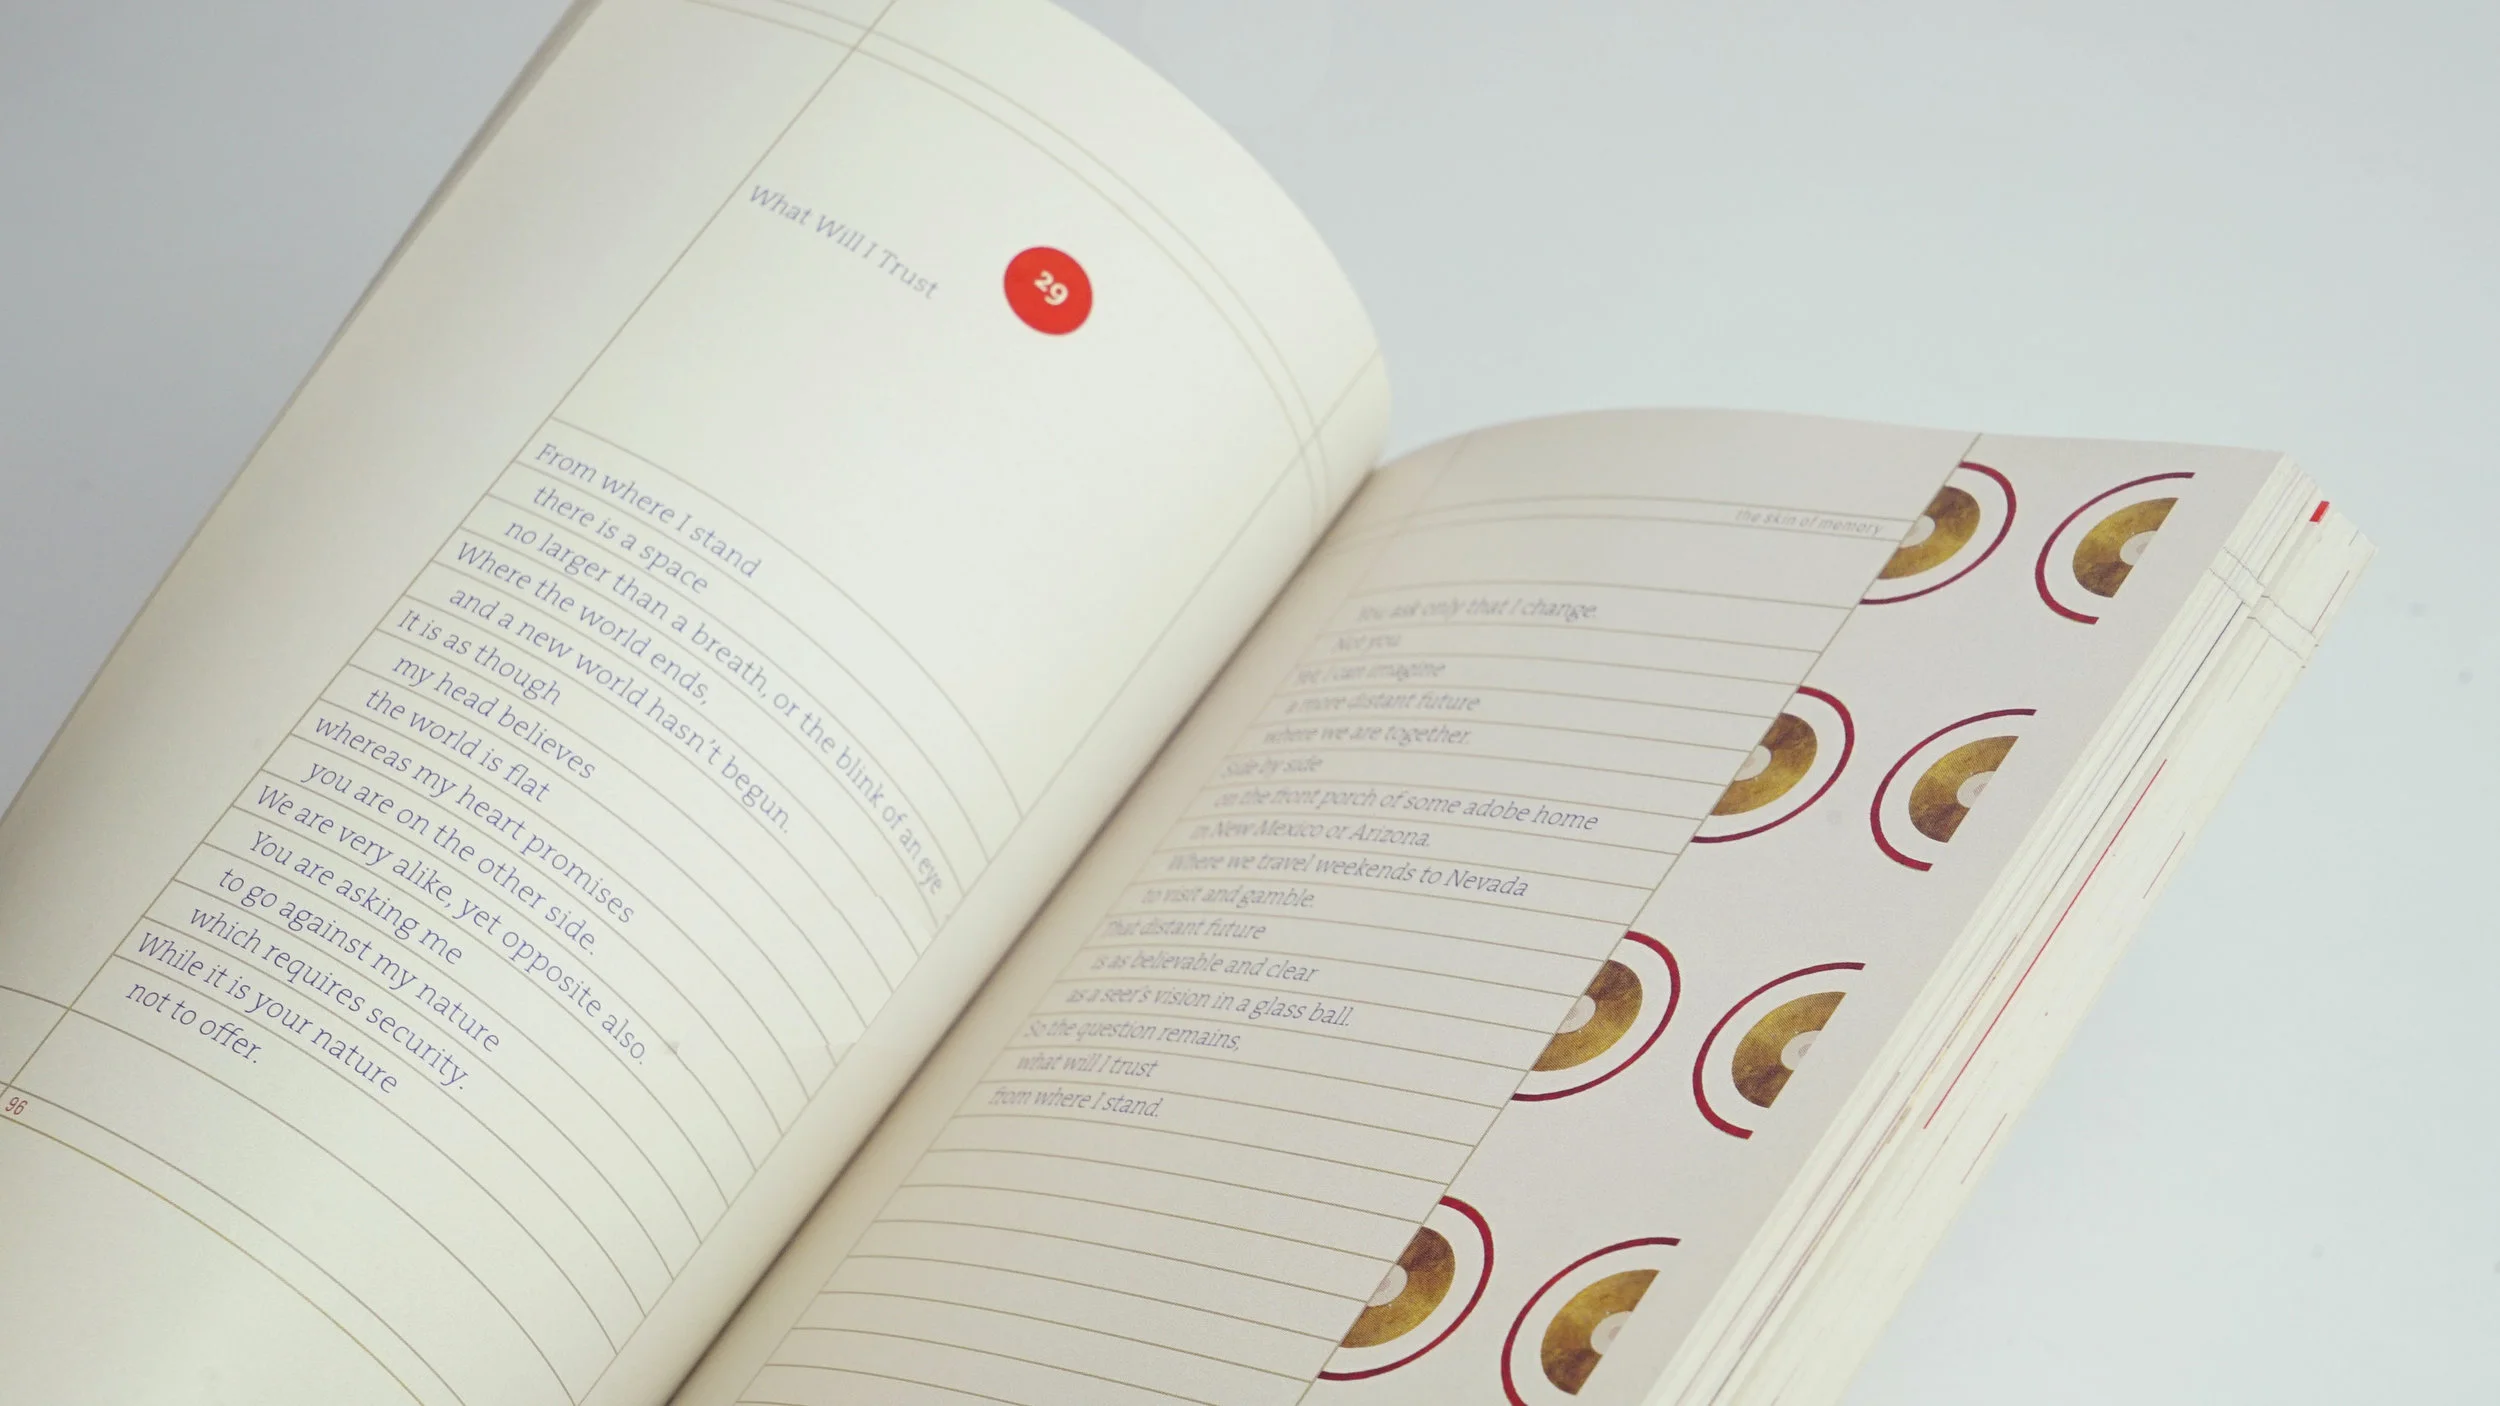 What Will I Trust
29
From where I stand
there is a space
no larger than a breath, or the blink of an eye
Where the world ends,
and a new world hasn't begun.
It is as though
my head believes
the world is flat
whereas my heart promises
you are on the other side.
We are very alike, yet opposite also.
You are asking me
to go against my nature
which requires security.
While it is your nature
not to offer.
96
the skin of memory
You ask only that I change.
Not you.
Yet I can imagine
a more distant future
where we are together.
Side by side
on the front porch of some adobe home
in New Mexico or Arizona.
Where we travel weekends to Nevada
to visit and gamble.
That distant future
is as believable and clear
as a seer's vision in a glass ball.
So the question remains,
what will I trust
from where I stand.